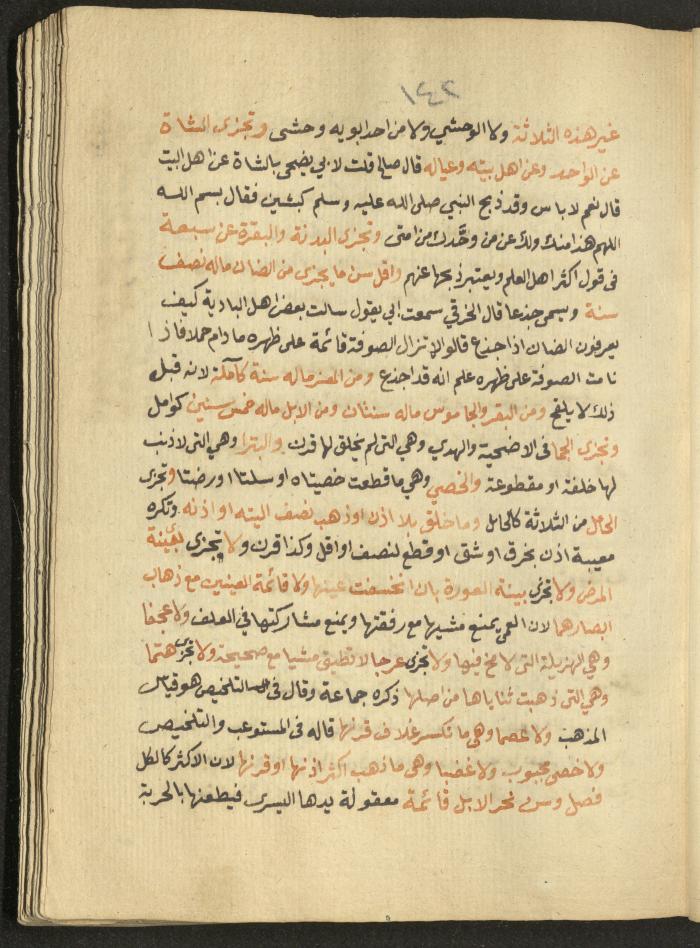 ١٤٢
غير هذه الثلاثة ولا الوحشي ولا من احد ابويه وحشى وتجزى الشاة
عن الواحد وعن اهل بيته وعياله قال صالح قلت لابي يضحى بالشاة عن اهل البيت
قال نعم لا باس وقد ذبح النبي صلى الله عليه وسلم كبشين فقال بسم الله
اللهم هذا منك ولك عن من وحدك من امتى وتجزى البدنة والبقرة عن سبعة
فى قول اكثر اهل العلم ويعتبر ذبحها عنهم واقل سن ما يجزى من الضان ماله نصف
سنة ويسمى جذعا قال الخرقي سمعت ابي يقول سالت بعض اهل البادية كيف
يعرفون الضان اذا جذع قالوا لا تزال الصوفة قائمة على ظهره مادام حملا فاذا
نامت الصوفة على ظهره علم انه قد اجذع ومن المعز ماله سنة كاملة لانه قبل
ذلك لا يلقح ومن البقر والجاموس ماله سنتان ومن الابل ماله خمس سنين كوامل
وتجزى الجما فى الاضحية والهدي وهي التى لم يخلق لها قرن والبترا وهي التى لا ذنب
لها خلقة او مقطوعة والخصي وهي ما قطعت خصيتاه او سلتا او رضتا وتجزى
الحامل من الثلاثة كالحايل وما خلق بلا اذن او ذهب نصف اليته او اذنه وتكره
معيبة اذن بخرق او شق او قطع لنصف او اقل وكذا قرن ولا تجزى بينة
المرض ولا تجزى بينة العورة بان انخسفت عينها ولا قائمة العينين مع ذهاب
ابصارهما لان العمى يمنع مشيها مع رفقتها ويمنع مشاركتها فى العلف ولا عجفا
وهي الهزيلة التى لا مخ فيها ولا تجزى عرجا لا تطيق مشيا مع صحيحة ولا تجزى هتما
وهي التى ذهبت ثناياها من اصلها ذكره جماعة وقال فى التلخيص هو قياس
المذهب ولا عصما وهي ما تكسر غلاف قرنها قاله فى المستوعب والتلخيص
ولا خصى مجبوب ولا عضبا وهي ما ذهب اكثر اذنها او قرنها لان الاكثر كالكل
فصل وسن نحر الابل قائمة معقولة يدها اليسرى فيطعنها بالحربة